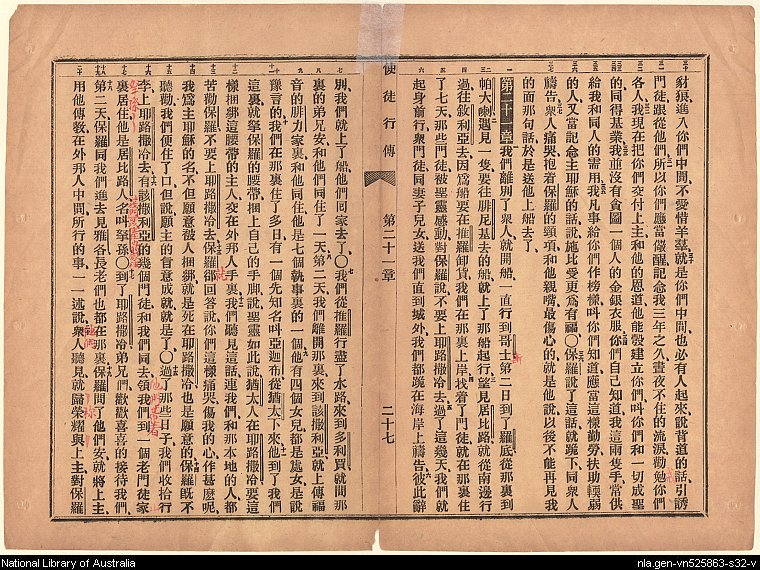 豺狼進入你們中間不愛惜羊羣就是你們中間也必有人起來說背道的話引誘
門徒跟從他們所以你們應當儆醒記念我三年之久晝夜不住的流淚勸勉你們
各人我現在把你們交付上主和他的恩道他能彀建立你們叫你們和一切成聖
的同得基業我並沒有貪圖一個人的金銀衣服你們自己知道我這兩隻手常供
給我和同人的需用我凡事給你們作榜樣叫你們知道應當這樣勤勞扶助輭弱
的人又當記念主耶穌的話說施比受更爲有福○保羅說了這話就跪下同衆人
禱告衆人痛哭抱着保羅的頸項和他親嘴最傷心的就是他說以後不能再見我
的面那句話於是送他上船去了
第二十一章我們離別了衆人就開船一直行到哥士第二日到了羅底從那裏到
帕大喇遇見一隻要往腓尼基去的船就上了那船起行望見居比路就從南邊行
過往敘利亞去因爲船要在推羅卸貨我們在那裏上岸找着了門徒就在那裏住
了七天那些門徒被聖靈感動對保羅說不要上耶路撒冷去過了這幾天我們就
起身前行衆門徒同妻子兒女送我們直到城外我們都跪在海岸上禱告彼此辭
使徒行傳 第二十一章 二十七
別我們就上了船他們回家去了○我們從推羅行盡了水路來到多利買就問那
裏的弟兄安和他們同住了一天第二天我們離開那裏來到該撒利亞就上傳福
音的腓力家和他同住他是七個執事裏的一個他有四個女兒都是處女是說
豫言的我們在那裏住了多日有一個先知名叫亞迦布從猶太下來他到了我們
這裏就拏保羅的腰帶捆上自己的手脚說聖靈如此說猶太人在耶路撒冷要這
樣捆綁這腰帶的主人交在外邦人手裏我們聽見這話連我們和那本地的人都
苦勸保羅不要上耶路撒冷去保羅卻回答說你們這樣痛哭傷我的心作甚麼呢
我爲主耶穌的名不但願意被人捆綁就是死在耶路撒冷也是願意的保羅既不
聽勸我們便住了口但說願主的旨意成就就是了○過了那些日子我們收拾行
李上耶路撒冷去有該撒利亞的幾個門徒和我們同去領我們到一個老門徒家
裏居住他是居比路人名叫拏孫○到了耶路撒冷弟兄們歡歡喜喜的接待我們
第二天保羅同我們進去見雅各長老們也都在那裏保羅問了他們安就將上主
用他傳敎在外邦人中間所行的事一一述說衆人聽見就歸榮耀與上主對保羅
National Library of Australia
nla.gen-vn525863-s32-v